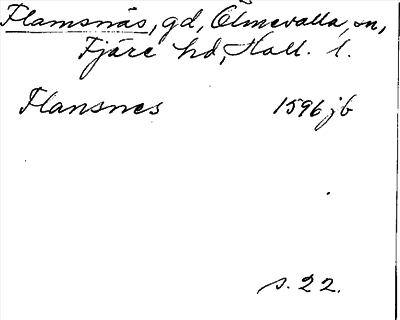 Flamsnäs, gd, Ölmevalla sn,
Fjäre hd, Hall. l.
Flansnes 1596 jb
s. 22.